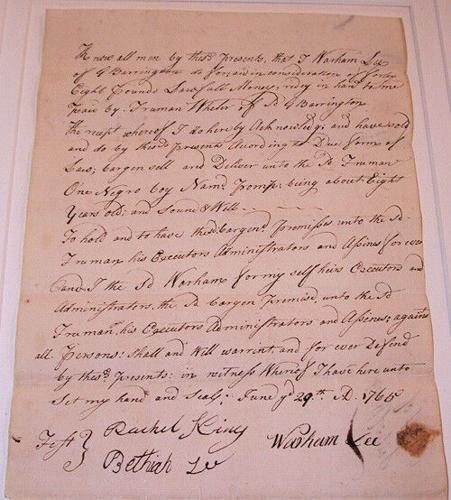 Know all men by thes Presents, that I Warham Lee
of G Barrington do for and in consideration of forty
Eight Pounds Lawfull Money, in hand to me
Paid by Truman Wheler of sd G Barrington
the recept whereof I do hereby Acknowledg; and have sold
and do by thes presents Acording to Due form of
Law; bargen sell and Deliver unto the sd Truman
One Negro boy Namd Pomp: being about Eight
Years old: and Sound & Well
To hold and to have the bargend Premisses unto the Sd
Truman his Executors Administrators and Assines for ever
and I the Sd Warham for my self heirs Executors and
Administrators, the Sd bargen Premise, unto the Sd
Truman, his Executors Administrators and Assines; against
all Persons: Shall and Will warrint, and for ever Defend
by thes Presents: in witness Whereof I have here unto
Set my hand and Seal; June ye 29th AD. 1765
Test } Rachel King
Warham Lee
Bethiah Lee